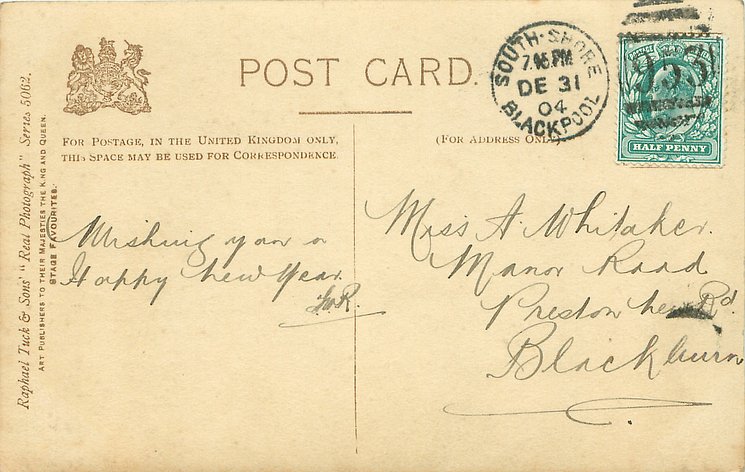 POST CARD.
SOUTH-SHORE
7.15 PM
DE 31
04
BLACKPOOL
935
HALF PENNY
FOR POSTAGE, IN THE UNITED KINGDOM ONLY,
THIS SPACE MAY BE USED FOR CORRESPONDENCE.
(FOR ADDRESS ONLY)
Raphael Tuck & Sons' "Real Photograph" Series 5062.
ART PUBLISHERS TO THEIR MAJESTIES THE KING AND QUEEN.
STAGE FAVOURITES.
Wishing you a
Happy New Year.
Miss A Whitaker.
Manor Road
Preston New Rd.
Blackburn